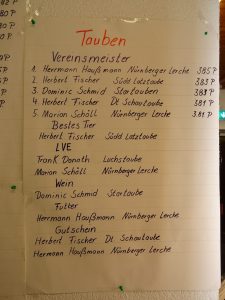 Tauben
Vereinsmeister
1. Herrmann Haußmann Nürnberger Lerche 385 P
2. Herbert Fischer Südd Latztaube 383 P
3. Dominic Schmid Startauben 383 P
4. Herbert Fischer Dt Schautaube 381 P
5. Marion Schöll Nürnberger Lerche 381 P
Bestes Tier
Herbert Fischer Südd Latztaube
LVE
Frank Donath Luchstaube
Marion Schöll Nürnberger Lerche
Wein
Dominic Schmid Startaube
Futter
Herrmann Haußmann Nürnberger Lerche
Gutschein
Herbert Fischer Dt Schautaube
Hermann Haußmann Nürnberger Lerche